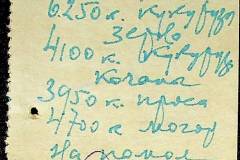 6.250 к. кукурузы
зерно
4100 к. кукуруз
Кочана
3950 к. проса
4700 к могар
На помол